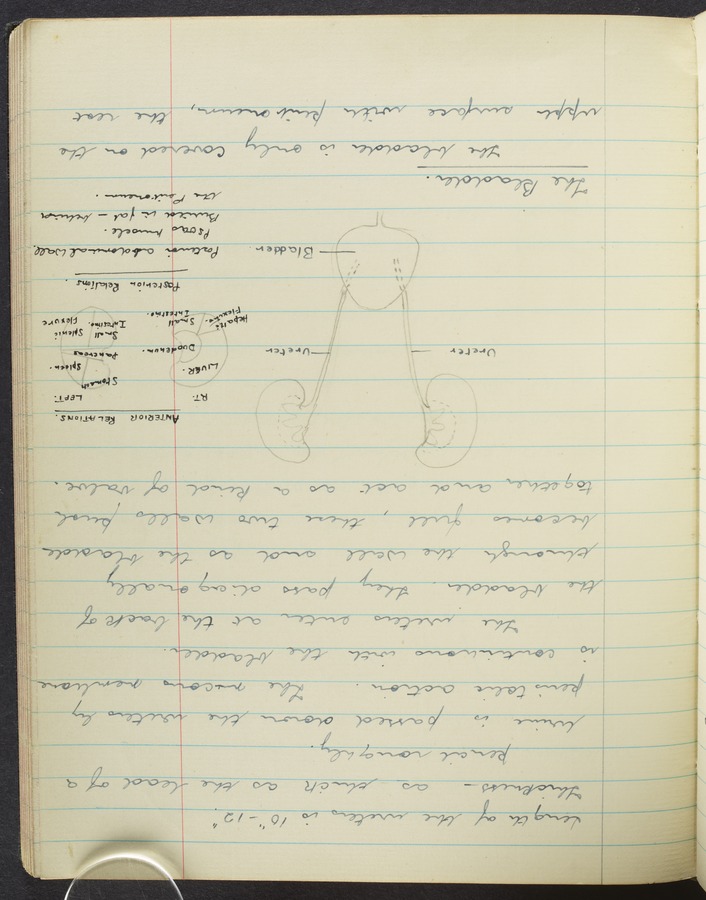 Length of the ureters is 10"-12".
Thickness - as thick as the lead of a
pencil roughly.
Urine is passed down the ureters by
peristalic action. The mucous membrane
is continuous with the bladder.
The ureters enter at the back of
the bladder. They pass diagonally
through the wall and as the bladder
becomes full, these two walls push
together and act as a kind of valve.
Ureter
Ureter
Bladder
ANTERIOR RELATIONS.
RT.
LIVER.
Duodenum.
Hepatic
Flexure.
Small
Intestine.
LEFT.
Stomach
Spleen.
Pancreas
Small
Intestine.
Splenic
Flexure
Posterior Relations.
Posterior abdominal wall.
Psoas muscle.
Buried in fat - behind
the Peritoneum.
The Bladder.
The bladder is only covered on the
upper surface with peritoneum, the rest